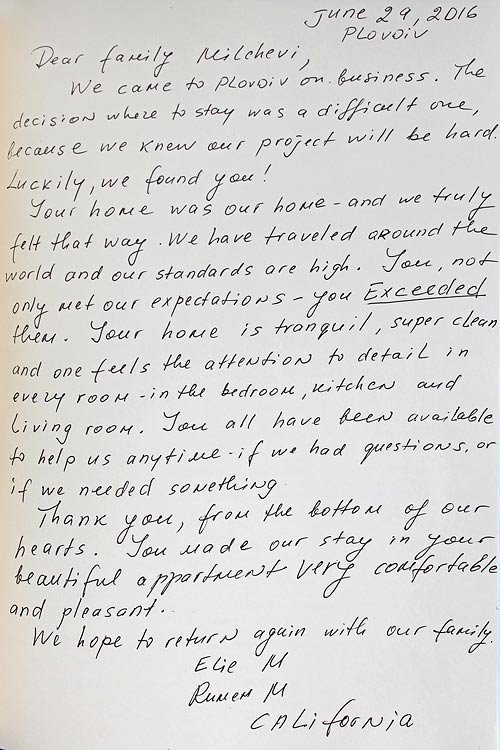 June 29, 2016
Plovdiv
Dear family Milchevi,
We came to Plovdiv on business. The
decision where to stay was a difficult one,
because we knew our project will be hard.
Luckily, we found you!
Your home was our home - and we truly
felt that way. We have traveled around the
world and our standards are high. You, not
only met our expectations - you Exceeded
them. Your home is tranquil, super clean
and one feels the attention to detail in
every room - in the bedroom, kitchen and
living room. You all have been available
to help us anytime - if we had questions, or
if we needed something.
Thank you, from the bottom of our
hearts. You made our stay in your
beautiful appartment very comfortable
and pleasant.
We hope to return again with our family.
Elie M
Rumen M
California